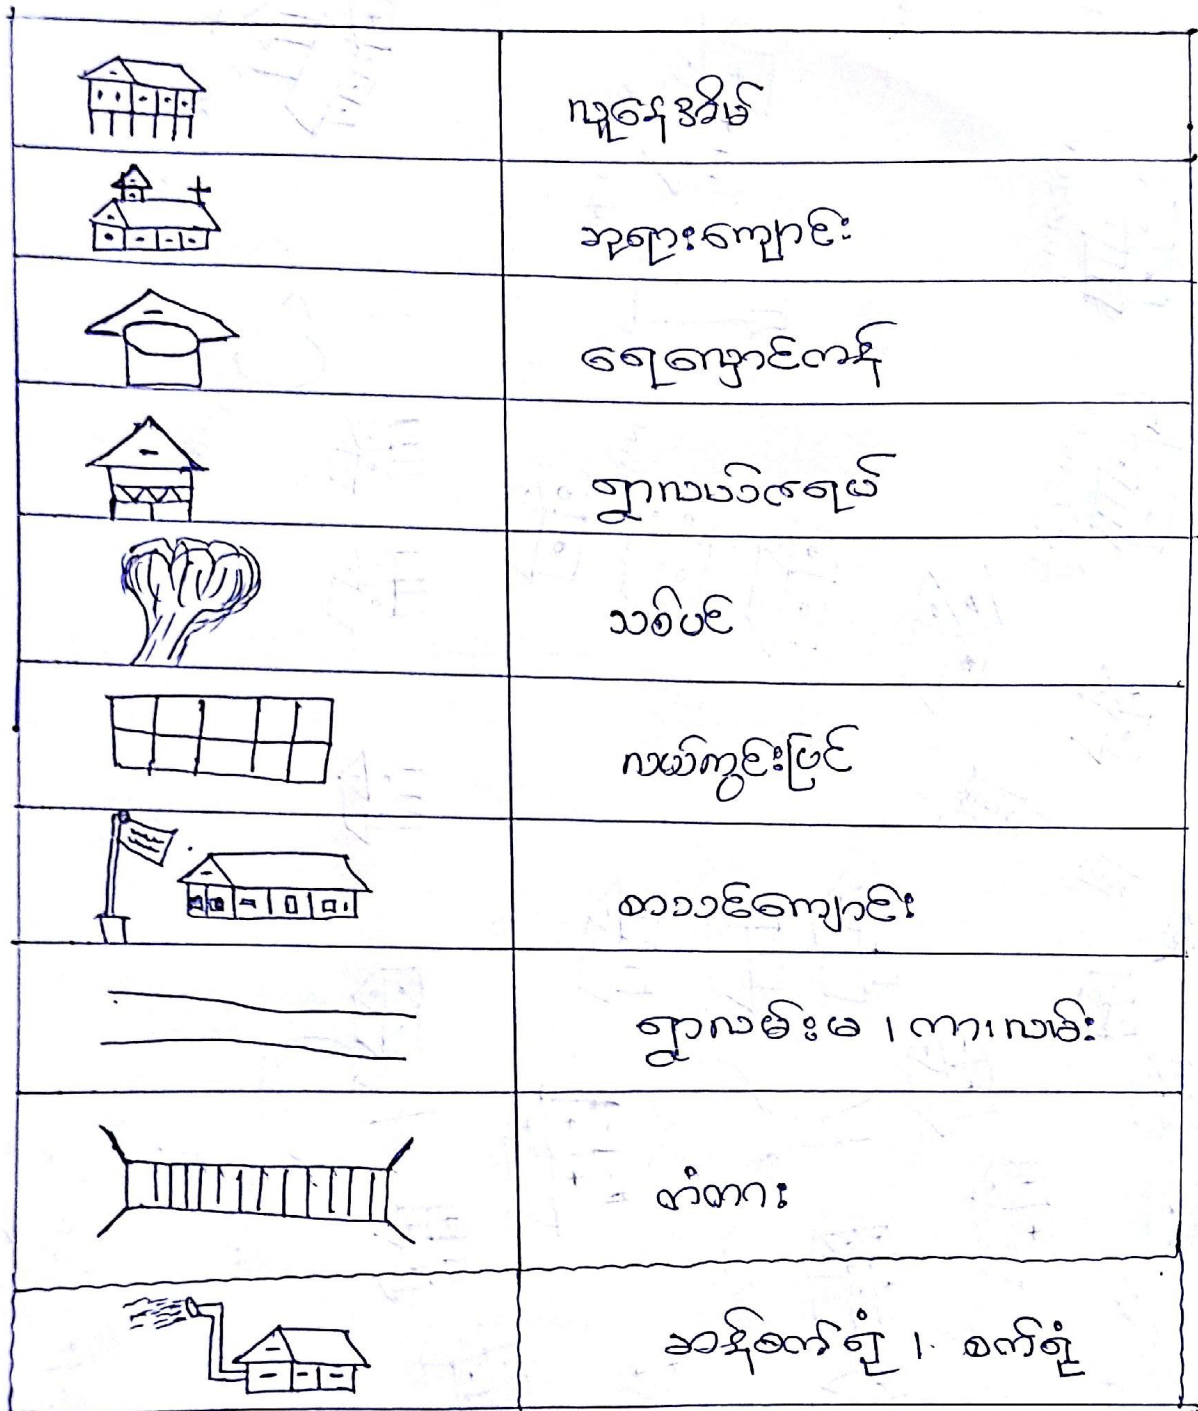 လူနေအိမ်
ဘုရားကျောင်း
ရေလှောင်ကန်
ရွာလယ်ဇရပ်
သစ်ပင်
လယ်ကွင်းပြင်
စာသင်ကျောင်း
ရွာလမ်းမ ၊ ကားလမ်း
တံတား
ဆန်စက်ရုံ ၊ စက်ရုံ